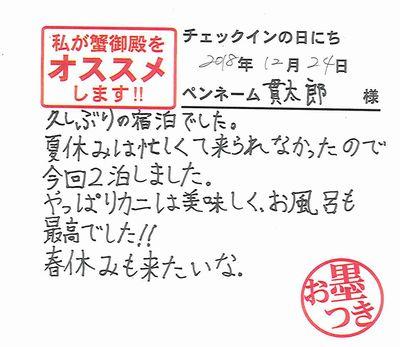 私が蟹御殿を
オススメ
します!!
チェックインの日にち
2018年12月24日
ペンネーム 貫太郎 様
久しぶりの宿泊でした。
夏休みは忙しくて来られなかったので
今回2泊しました。
やっぱりカニは美味しく、お風呂も
最高でした!!
春休みも来たいな。
お墨つき